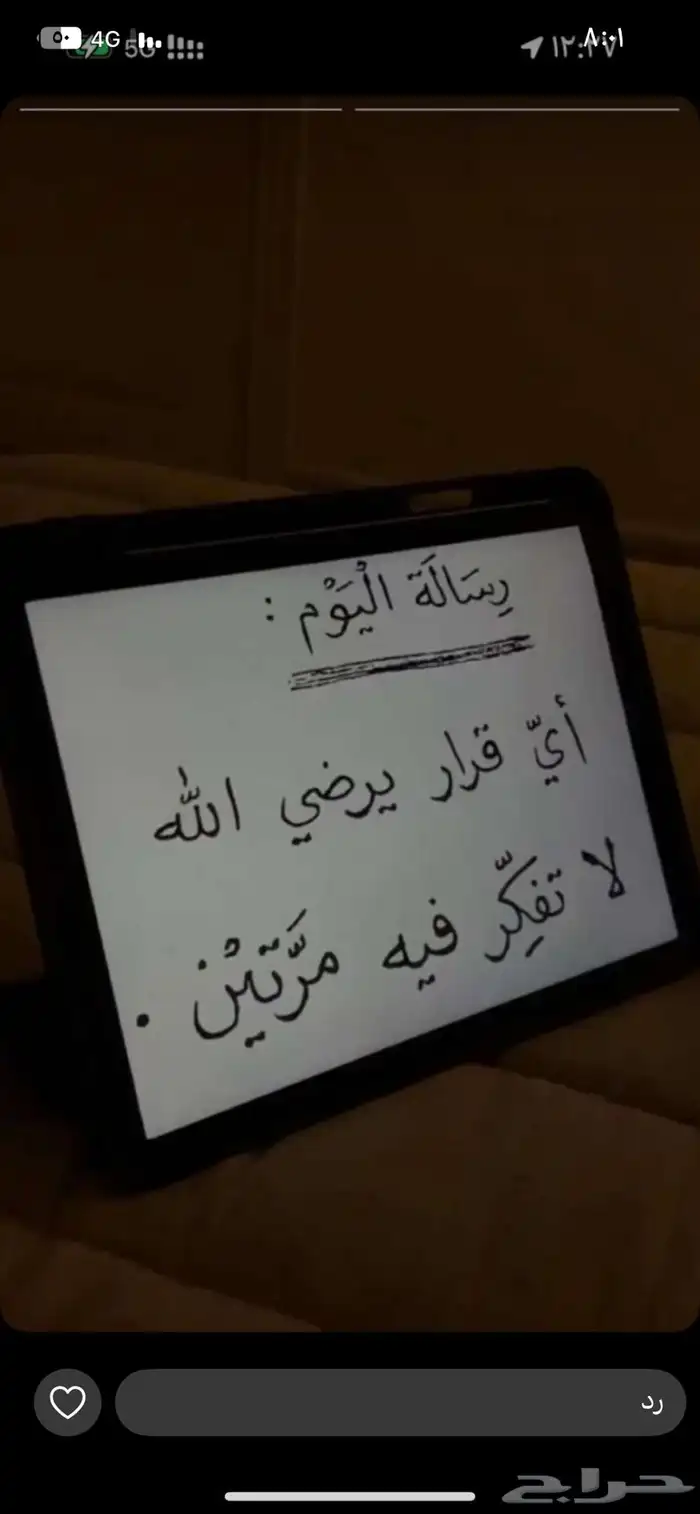 4G
5G
٨:٠١
١٢:٣٧
رِسَالَة الْيَوْم :
أيّ قرار يرضي الله
لا تفكِّر فيه مرَّتيْن .
رد
حراج